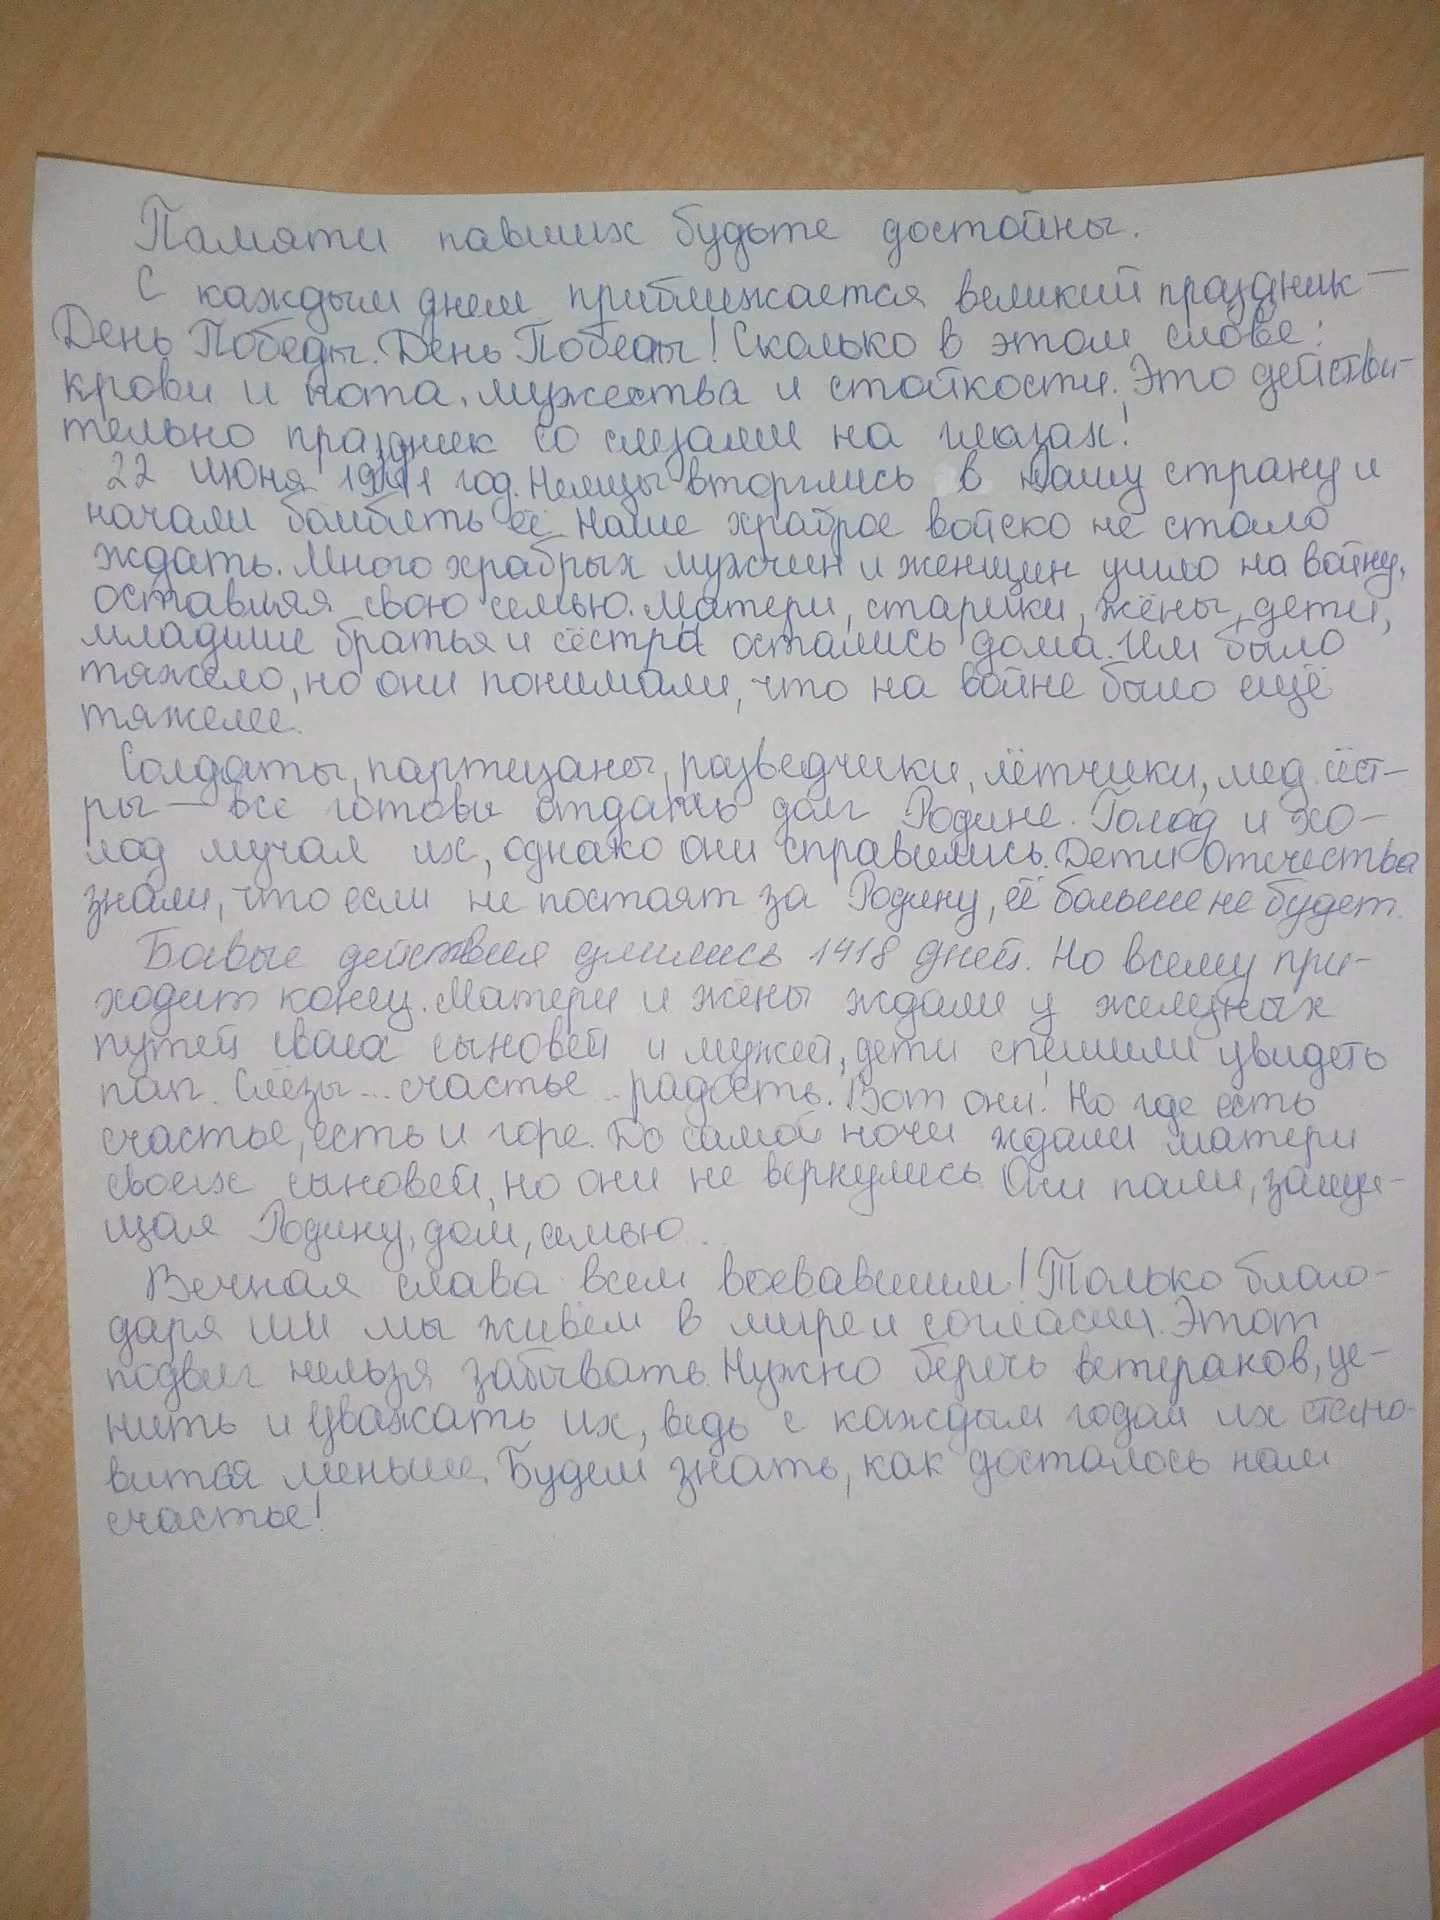 Памяти павших будьте достойны.
С каждым днем приближается великий праздник —
День Победы. День Победы! Сколько в этом слове:
крови и пота, мужества и стойкости. Это действи-
тельно праздник со слезами на глазах!
22 июня 1941 год. Немцы вторглись в нашу страну и
начали бомбить её. Наше храброе войско не стало
ждать. Много храбрых мужчин и женщин ушло на войну,
оставляя свою семью. Матери, старики, жёны, дети,
младшие братья и сёстра остались дома. Им было
тяжело, но они понимали, что на войне было ещё
тяжелее.
Солдаты, партизаны, разведчики, лётчики, мед.сёст-
ры — все готовы отдать долг Родине. Голод и хо-
лод мучал их, однако они справились. Дети Отечества
знали, что если не постоят за Родину, её больше не будет.
Боевые действия длились 1418 дней. Но всему при-
ходит конец. Матери и жёны ждали у железных
путей своих сыновей и мужей, дети спешили увидеть
пап. Слёзы... счастье... радость. Вот они! Но где есть
счастье, есть и горе. До самой ночи ждали матери
своих сыновей, но они не вернулись. Они пали, защи-
щая Родину, дом, семью.
Вечная слава всем воевавшим! Только благо-
даря им мы живём в мире и согласии. Этот
подвиг нельзя забывать. Нужно беречь ветеранов, це-
нить и уважать их, ведь с каждым годом их стано-
вится меньше. Будем знать, как досталось нам
счастье!